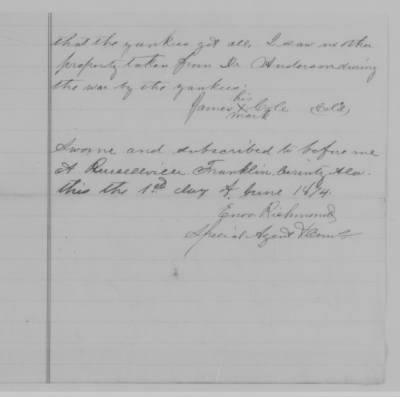 that the yankies got all. I saw no other
property taken from Dr Anderson during
the war by the yankies.
his
James X Cole (Col'd)
mark
Sworne and subscribed to before me
At Russellville Franklin County Ala.
this the 1st day of June 1874.
Enos Richmond
Special Agent &